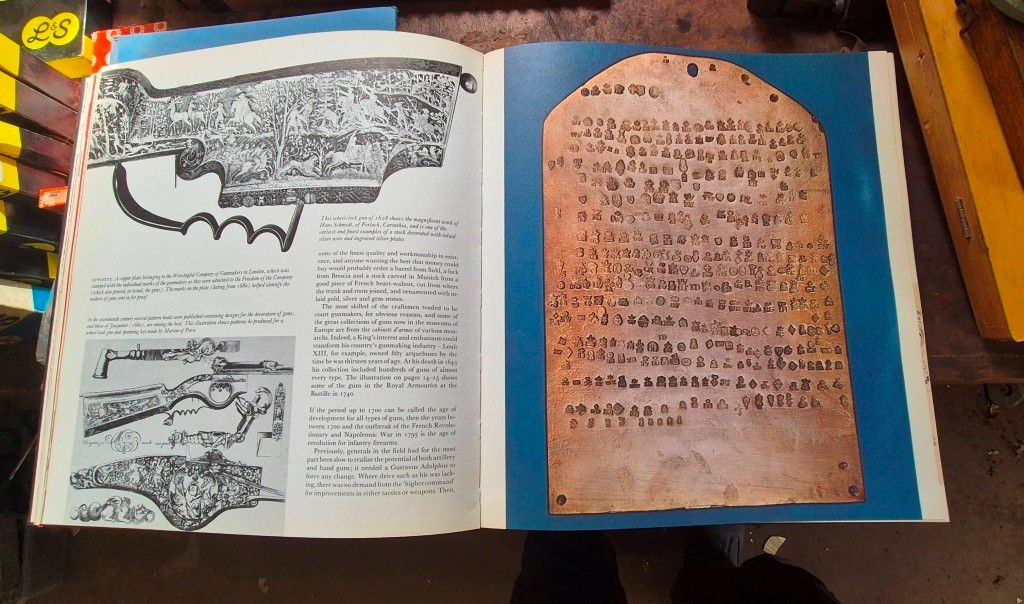 L&S
This wheel-lock gun of 1628 shows the magnificent work of
Hans Schmidt, of Ferlach, Carinthia, and is one of the
earliest and finest examples of a stock decorated with inlaid
silver wire and engraved silver plates
OPPOSITE: A copper plate belonging to the Worshipful Company of Gunmakers in London, which was
stamped with the individual marks of the gunmakers as they were admitted to the Freedom of the Company
(which also proved, or tested, the guns). The marks on the plate (dating from 1680) helped identify the
makers of guns sent in for proof
In the seventeenth century several pattern books were published containing designs for the decoration of guns,
and those of Jacquinet (1660), are among the best. This illustration shows patterns he produced for a
wheel-lock gun and spanning key made by Martin of Paris
some of the finest quality and workmanship in exist-
ence, and anyone wanting the best that money could
buy would probably order a barrel from Suhl, a lock
from Brescia and a stock carved in Munich from a
good piece of French heart-walnut, cut from where
the trunk and roots joined, and ornamented with in-
laid gold, silver and gem stones.
The most skilled of the craftsmen tended to be
court gunmakers, for obvious reasons, and some of
the great collections of guns now in the museums of
Europe are from the cabinets d'armes of various mon-
archs. Indeed, a King's interest and enthusiasm could
transform his country's gunmaking industry – Louis
XIII, for example, owned fifty arquebuses by the
time he was thirteen years of age. At his death in 1643
his collection included hundreds of guns of almost
every type. The illustration on pages 14–15 shows
some of the guns in the Royal Armouries at the
Bastille in 1740.
If the period up to 1700 can be called the age of
development for all types of guns, then the years be-
tween 1700 and the outbreak of the French Revolu-
tionary and Napoleonic War in 1793 is the age of
revolution for infantry firearms.
Previously, generals in the field had for the most
part been slow to realize the potential of both artillery
and hand guns; it needed a Gustavus Adolphus to
force any change. Where drive such as his was lack-
ing, there was no demand from the 'higher command'
for improvements in either tactics or weapons. Then,